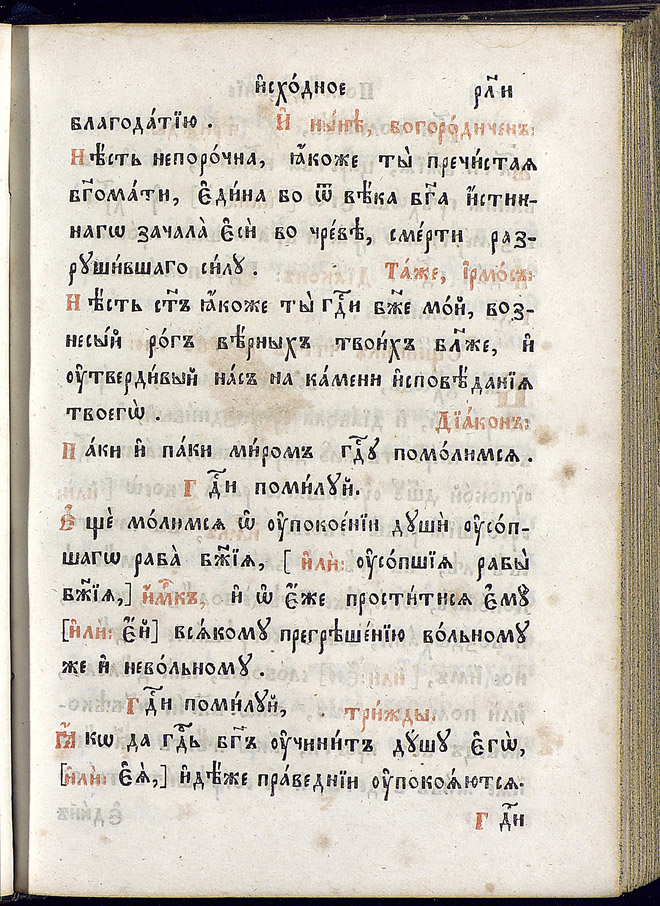 и҆схо́дное рл҃и
благода́тїю. И҆ ны́нѣ, богоро́диченъ:
Нѣ́сть непоро́чна, ꙗ҆́коже ты̀ пречи́стаѧ
бг҃ома́ти, є҆ди́на бо ѿ вѣ́ка бг҃а и҆́стин-
наго зачала̀ є҆сѝ во чре́вѣ, сме́рти раз-
рꙋши́вшаго си́лꙋ. Та́же, і҆рмо́съ:
Нѣ́сть ст҃ъ ꙗ҆́коже ты̀ гдⷭ҇и бж҃е мо́й, воз-
несы́й ро́гъ вѣ́рныхъ твои́хъ бл҃же, и҆
ᲂу҆тверди́вый на́съ на ка́мени и҆сповѣ́данїѧ
твоегѡ̀. Дїа́конъ:
Па́ки и҆ па́ки ми́ромъ гдⷭ҇ꙋ помо́лимсѧ.
Гдⷭ҇и поми́лꙋй.
Є҆щѐ мо́лимсѧ ѡ҆ ᲂу҆покое́нїи дꙋшѝ ᲂу҆со́п-
шагѡ раба̀ бж҃їѧ, [и҆лѝ: ᲂу҆со́пшїѧ рабы̀
бж҃їѧ,] и҆́мⷬ҇къ, и҆ ѡ҆ є҆́же прости́тисѧ є҆мꙋ̀
[и҆лѝ: є҆́й] всѧ́комꙋ прегрѣше́нїю во́льномꙋ
же и҆ нево́льномꙋ.
Гдⷭ҇и поми́лꙋй, три́жды.
Ꙗ҆́кѡ да гдⷭ҇ь бг҃ъ ᲂу҆чини́тъ дꙋ́шꙋ є҆гѡ̀,
[и҆лѝ: є҆ѧ̀,] и҆дѣ́же пра́веднїи ᲂу҆поко́ѧютсѧ.
Гдⷭ҇и